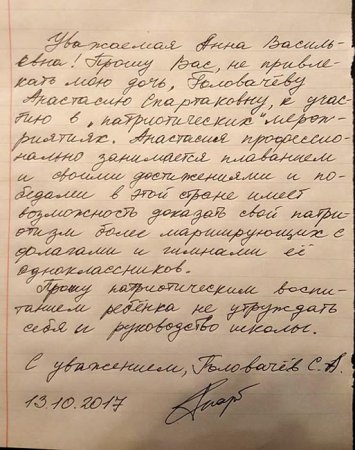 Уважаемая Анна Василь-
евна! Прошу Вас, не привле-
кать мою дочь, Головачёву
Анастасию Спартаковну, к учас-
тию в „патриотических" мероп-
риятиях. Анастасия професcио-
нально занимается плаванием
и своими достижениями и по-
бедами в этой стране имеет
возможность доказать свой патри-
отизм более марширующих с
флагами и гимнами её
одноклассников.
Прошу патриотическим воспи-
танием ребёнка не утруждать
себя и руководство школы.
С уважением, Головачёв С. А.
13.10.2017